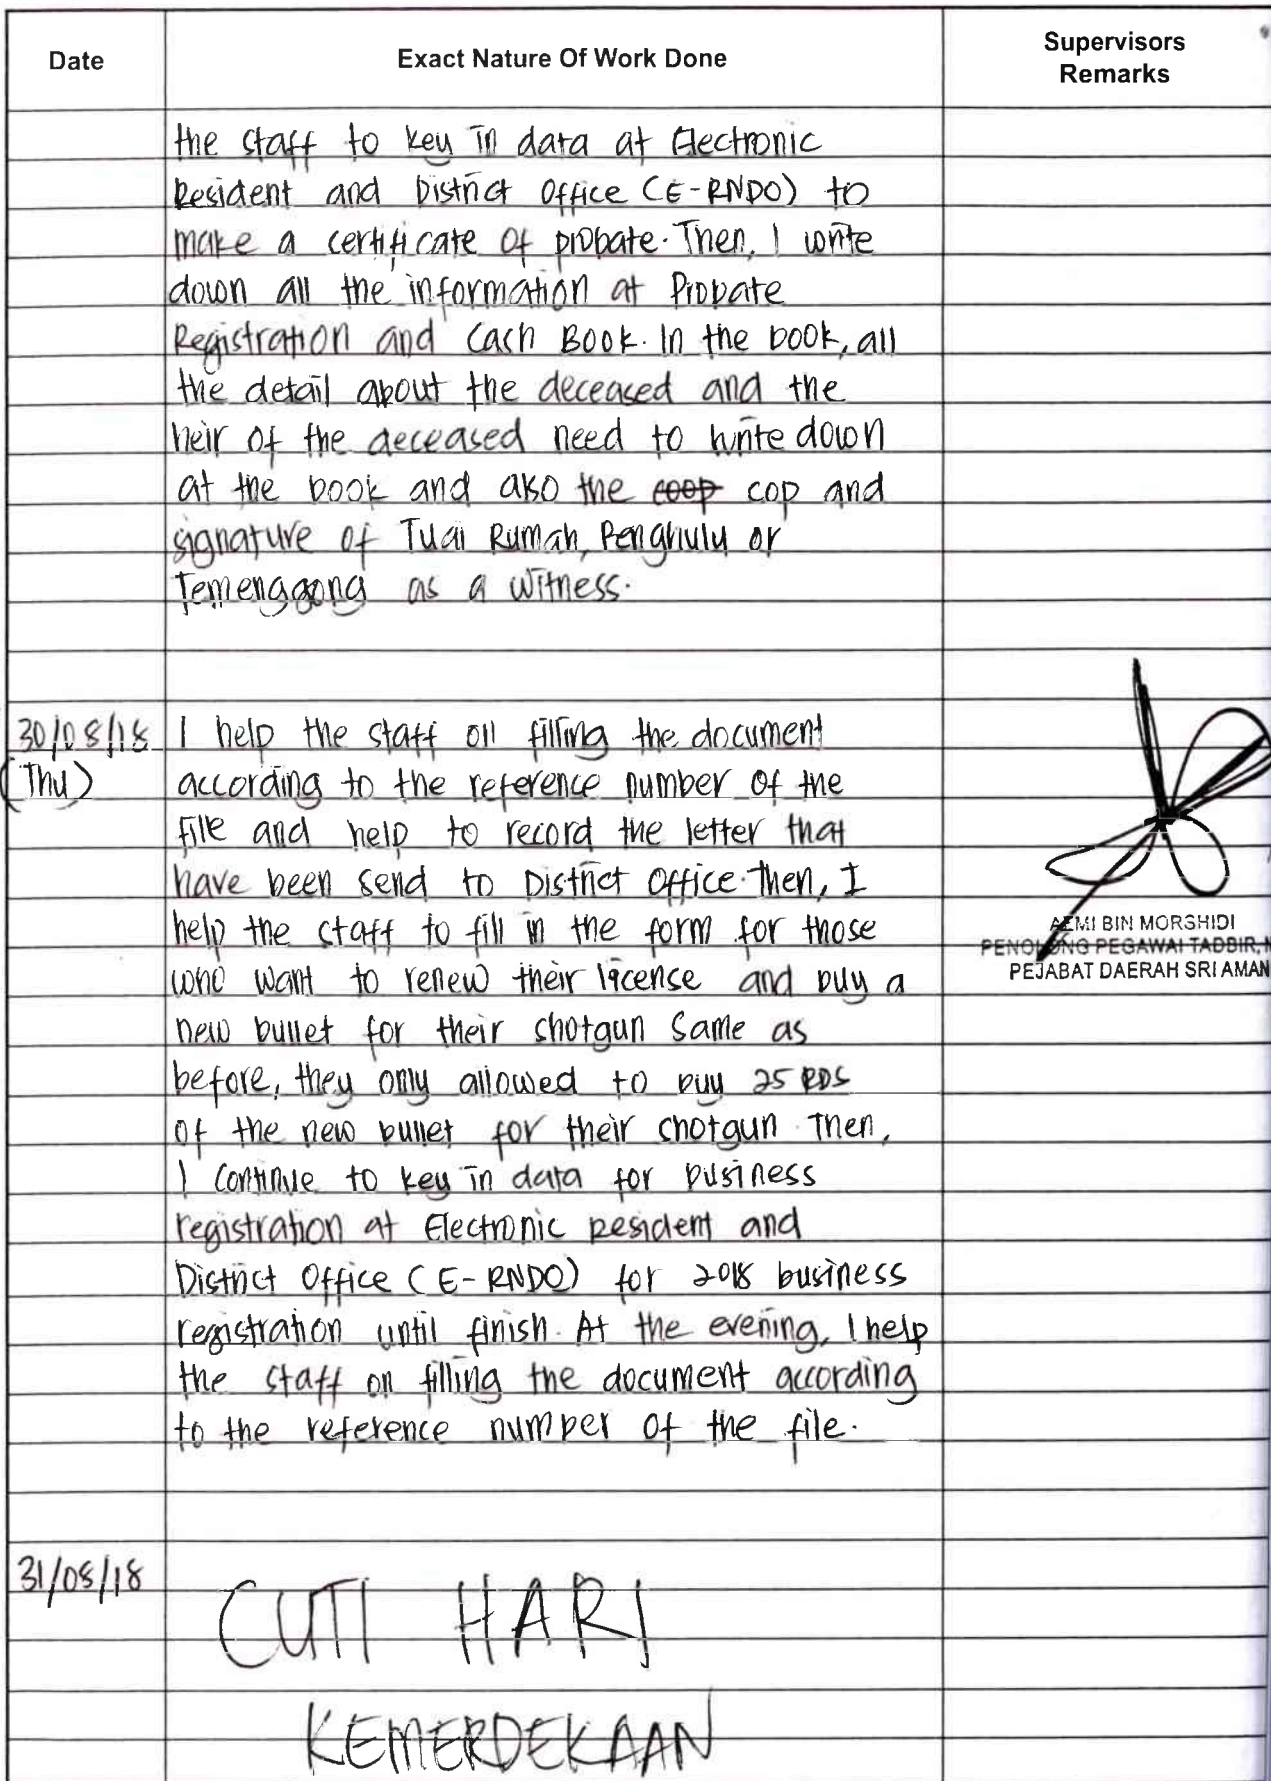 Date
Exact Nature Of Work Done
Supervisors
Remarks
the staff to key in data at Electronic
Resident and District Office (E-RNDO) to
make a certificate of probate. Then, I write
down all the information at Probate
Registration and Cash Book. In the book, all
the detail about the deceased and the
heir of the deceased need to write down
at the book and also the coop cop and
signature of Tuai Rumah, Penghulu or
Temenggong as a witness.
30/08/18
(Thu)
I help the staff on filling the document
according to the reference number of the
file and help to record the letter that
have been send to District Office. Then, I
help the staff to fill in the form for those
who want to renew their license and buy a
new bullet for their shotgun same as
before, they only allowed to buy 25 RDS
of the new bullet for their shotgun. Then,
I continue to key in data for business
registration at Electronic Resident and
District Office (E-RNDO) for 2018 business
registration until finish. At the evening, I help
the staff on filling the document according
to the reference number of the file.
AZMI BIN MORSHIDI
PENOLONG PEGAWAI TADBIR, N
PEJABAT DAERAH SRI AMAN
31/08/18
CUTI HARI
KEMERDEKAAN